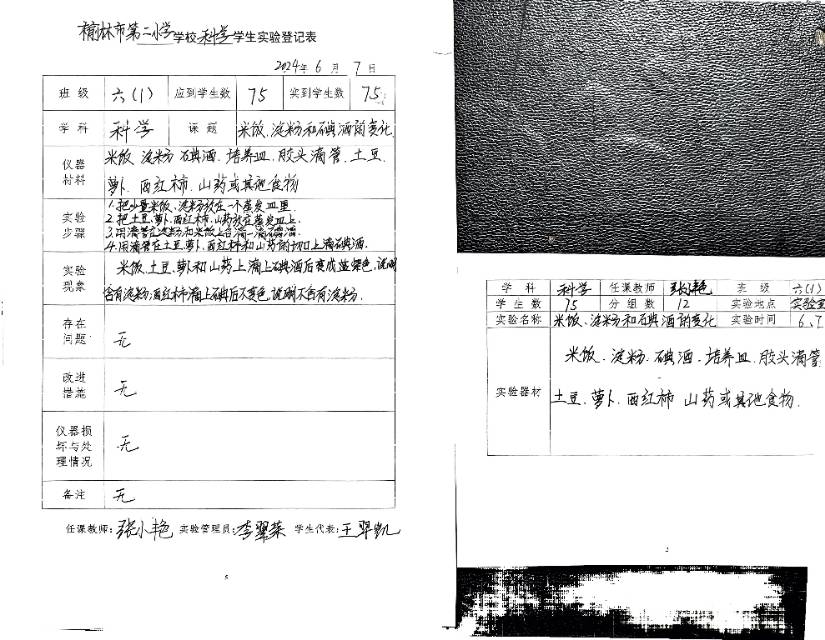 榆林市第二小学学校科学学生实验登记表
2024年 6 月 7 日
班 级 六(1) 应到学生数 75 实到学生数 75
学 科 科学 课 题 米饭、淀粉和碘酒的变化
仪器材料 米饭 淀粉 碘酒、培养皿、胶头滴管、土豆、
萝卜、西红柿、山药或其他食物
实验步骤 1.把少量米饭、淀粉放在一个蒸发皿里.
2.把土豆、萝卜、西红柿、山药放在蒸发皿上.
3.用滴管在淀粉和米饭上各滴一滴碘酒.
4.用滴管在土豆、萝卜、西红柿和山药的切口上滴碘酒.
实验现象 米饭、土豆、萝卜和山药上滴上碘酒后变成蓝绿色,说明
含有淀粉;西红柿滴上碘后不变色,说明不含有淀粉.
存在问题 无
改进措施 无
仪器损坏与处理情况 无
备注 无
任课教师:张小艳 实验管理员:李翠荣 学生代表:王羿凯
5
学 科 科学 任课教师 张小艳 班 级 六(1)
学 生 数 75 分 组 数 12 实验地点 实验室
实验名称 米饭、淀粉和碘酒的变化 实验时间 6.7
实验器材 米饭、淀粉、碘酒、培养皿、胶头滴管
土豆、萝卜、西红柿 山药或其他食物.
2